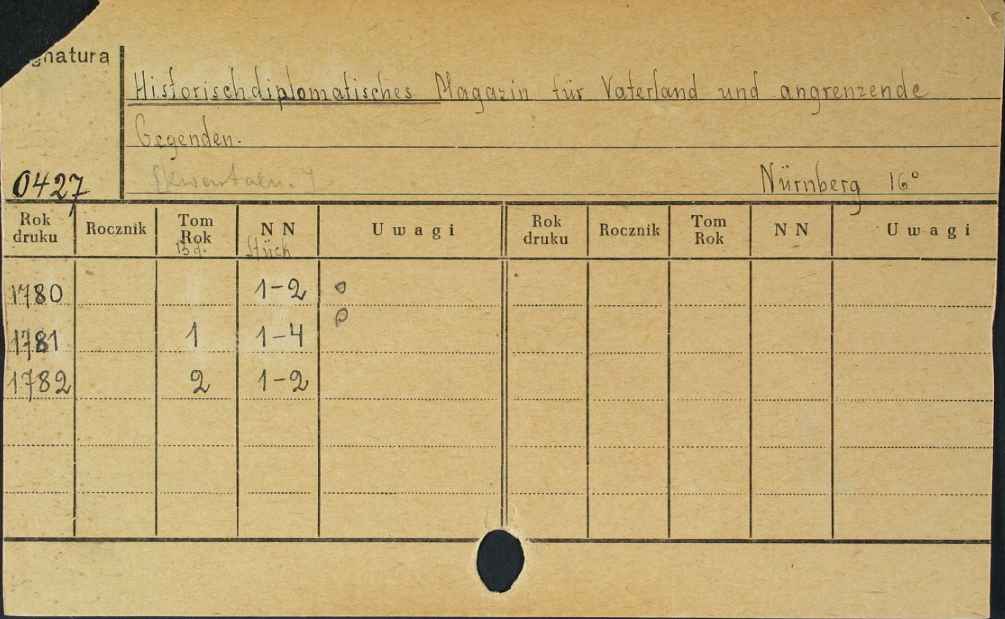 Historischdiplomatisches Magazin für Vaterland und angrenzende
Gegenden.
0427
Nürnberg 16°
Rok druku Rocznik Tom Rok N N Uwagi Rok druku Rocznik Tom Rok N N Uwagi
Bd. Stück
1780 1-2
1781 1 1-4
1782 2 1-2